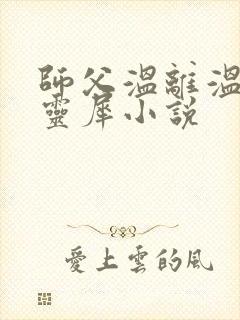 師父溫離溫
靈犀小說
愛上雲的風